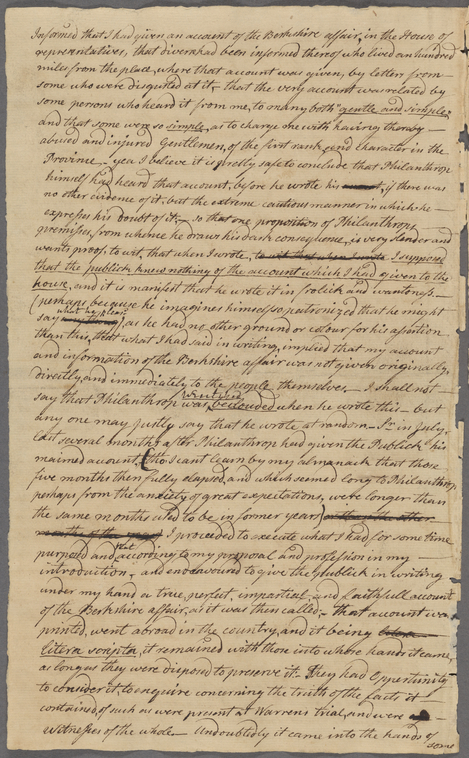 Informed that I had given an account of the Berkshire affair, in the House of
representatives, that divers had been informed thereof who lived an hundred
miles from the place, where that account was given, by letters from
some who were disgusted at it, that the very account was related by
some persons who heard it from me, to many both gentle and simple,
and that some were so simple, as to charge me with having thereby
abused and injured Gentlemen, of the first rank, and character in the
Province - yea I believe it is pretty safe to conclude that Philanthrop
himself had heard that account, before he wrote his if there was
no other evidence of it, but the extreme cautious manner in which he
expresses his doubt of it. - so that one proposition of Philanthrops
premises, from whence he draws his dark consequence, is very slender and
wants proof, to wit, that when I wrote, to wit that when I wrote I supposed
that the publick knew nothing of the account which I had given to the
house, and it is manifest that he wrote it in frolick and wantoness
(perhaps because he imagines himself so patronized that he might
say what he please) as he had no other ground or colour for his assertion
than this, that what I had said in writing, implied that my account
and information of the Berkshire affair was not given originally,
directly, and immediately to the people themselves. - I shall not
say that Philanthrop was beclouded when he wrote this - but
any one may justly say that he wrote at random - Sr. in July
last several months after Philanthrop had given the Publick his
maimed account, (tho I cant learn by my almanack that those
five months then fully elapsed, and which seemed long to Philanthrop,
perhaps from the anxiety of great expectations, were longer than
the same months used to be in former years) or than the other
months of the year I proceeded to execute what I had for some time
purposed and that according to my proposal and profession in my
introduction, and endeavoured to give the publick in writing
under my hand a true, perfect, impartial, and faithfull account
of the Berkshire affair, as it was then called, - that account was
printed, went abroad in the country, and it being
litera scripta, it remained with those into whose hands it came
as long as they were disposed to preserve it. They had Oppertunity
to consider it, to enquire concerning the truth of the facts it
contained, of such as were present at Warrens trial, and were
witnesses of the whole - Undoubtedly it came into the hands of
some